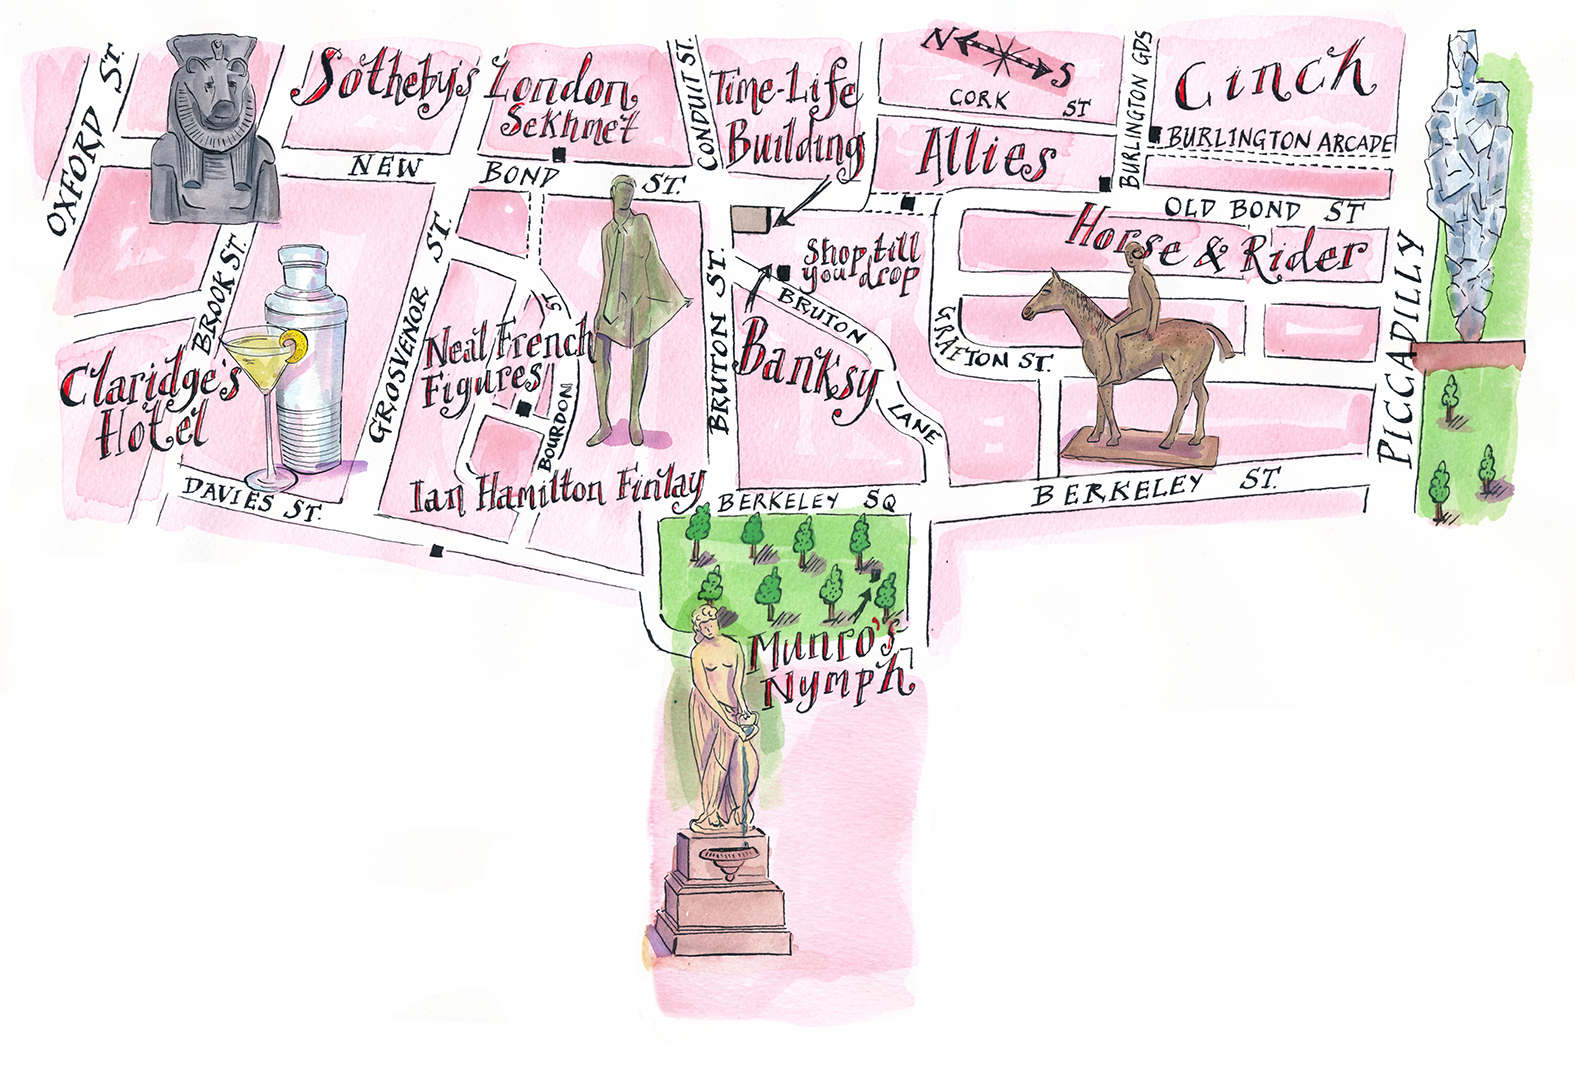 OXFORD ST.
Sotheby's
London
Sekhmet
CONDUIT ST.
Time-Life
Building
N S
CORK ST
BURLINGTON GDS
Cinch
Allies
BURLINGTON ARCADE
NEW BOND ST.
OLD BOND ST
Horse & Rider
PICCADILLY
BROOK ST.
GROSVENOR ST.
Shop till
you drop
BRUTON ST.
BRUTON LANE
Banksy
GRAFTON ST.
Neal French
Figures
BOURDON ST
Claridge's
Hotel
DAVIES ST.
Ian Hamilton Finlay
BERKELEY SQ
BERKELEY ST.
Munro's
Nymph